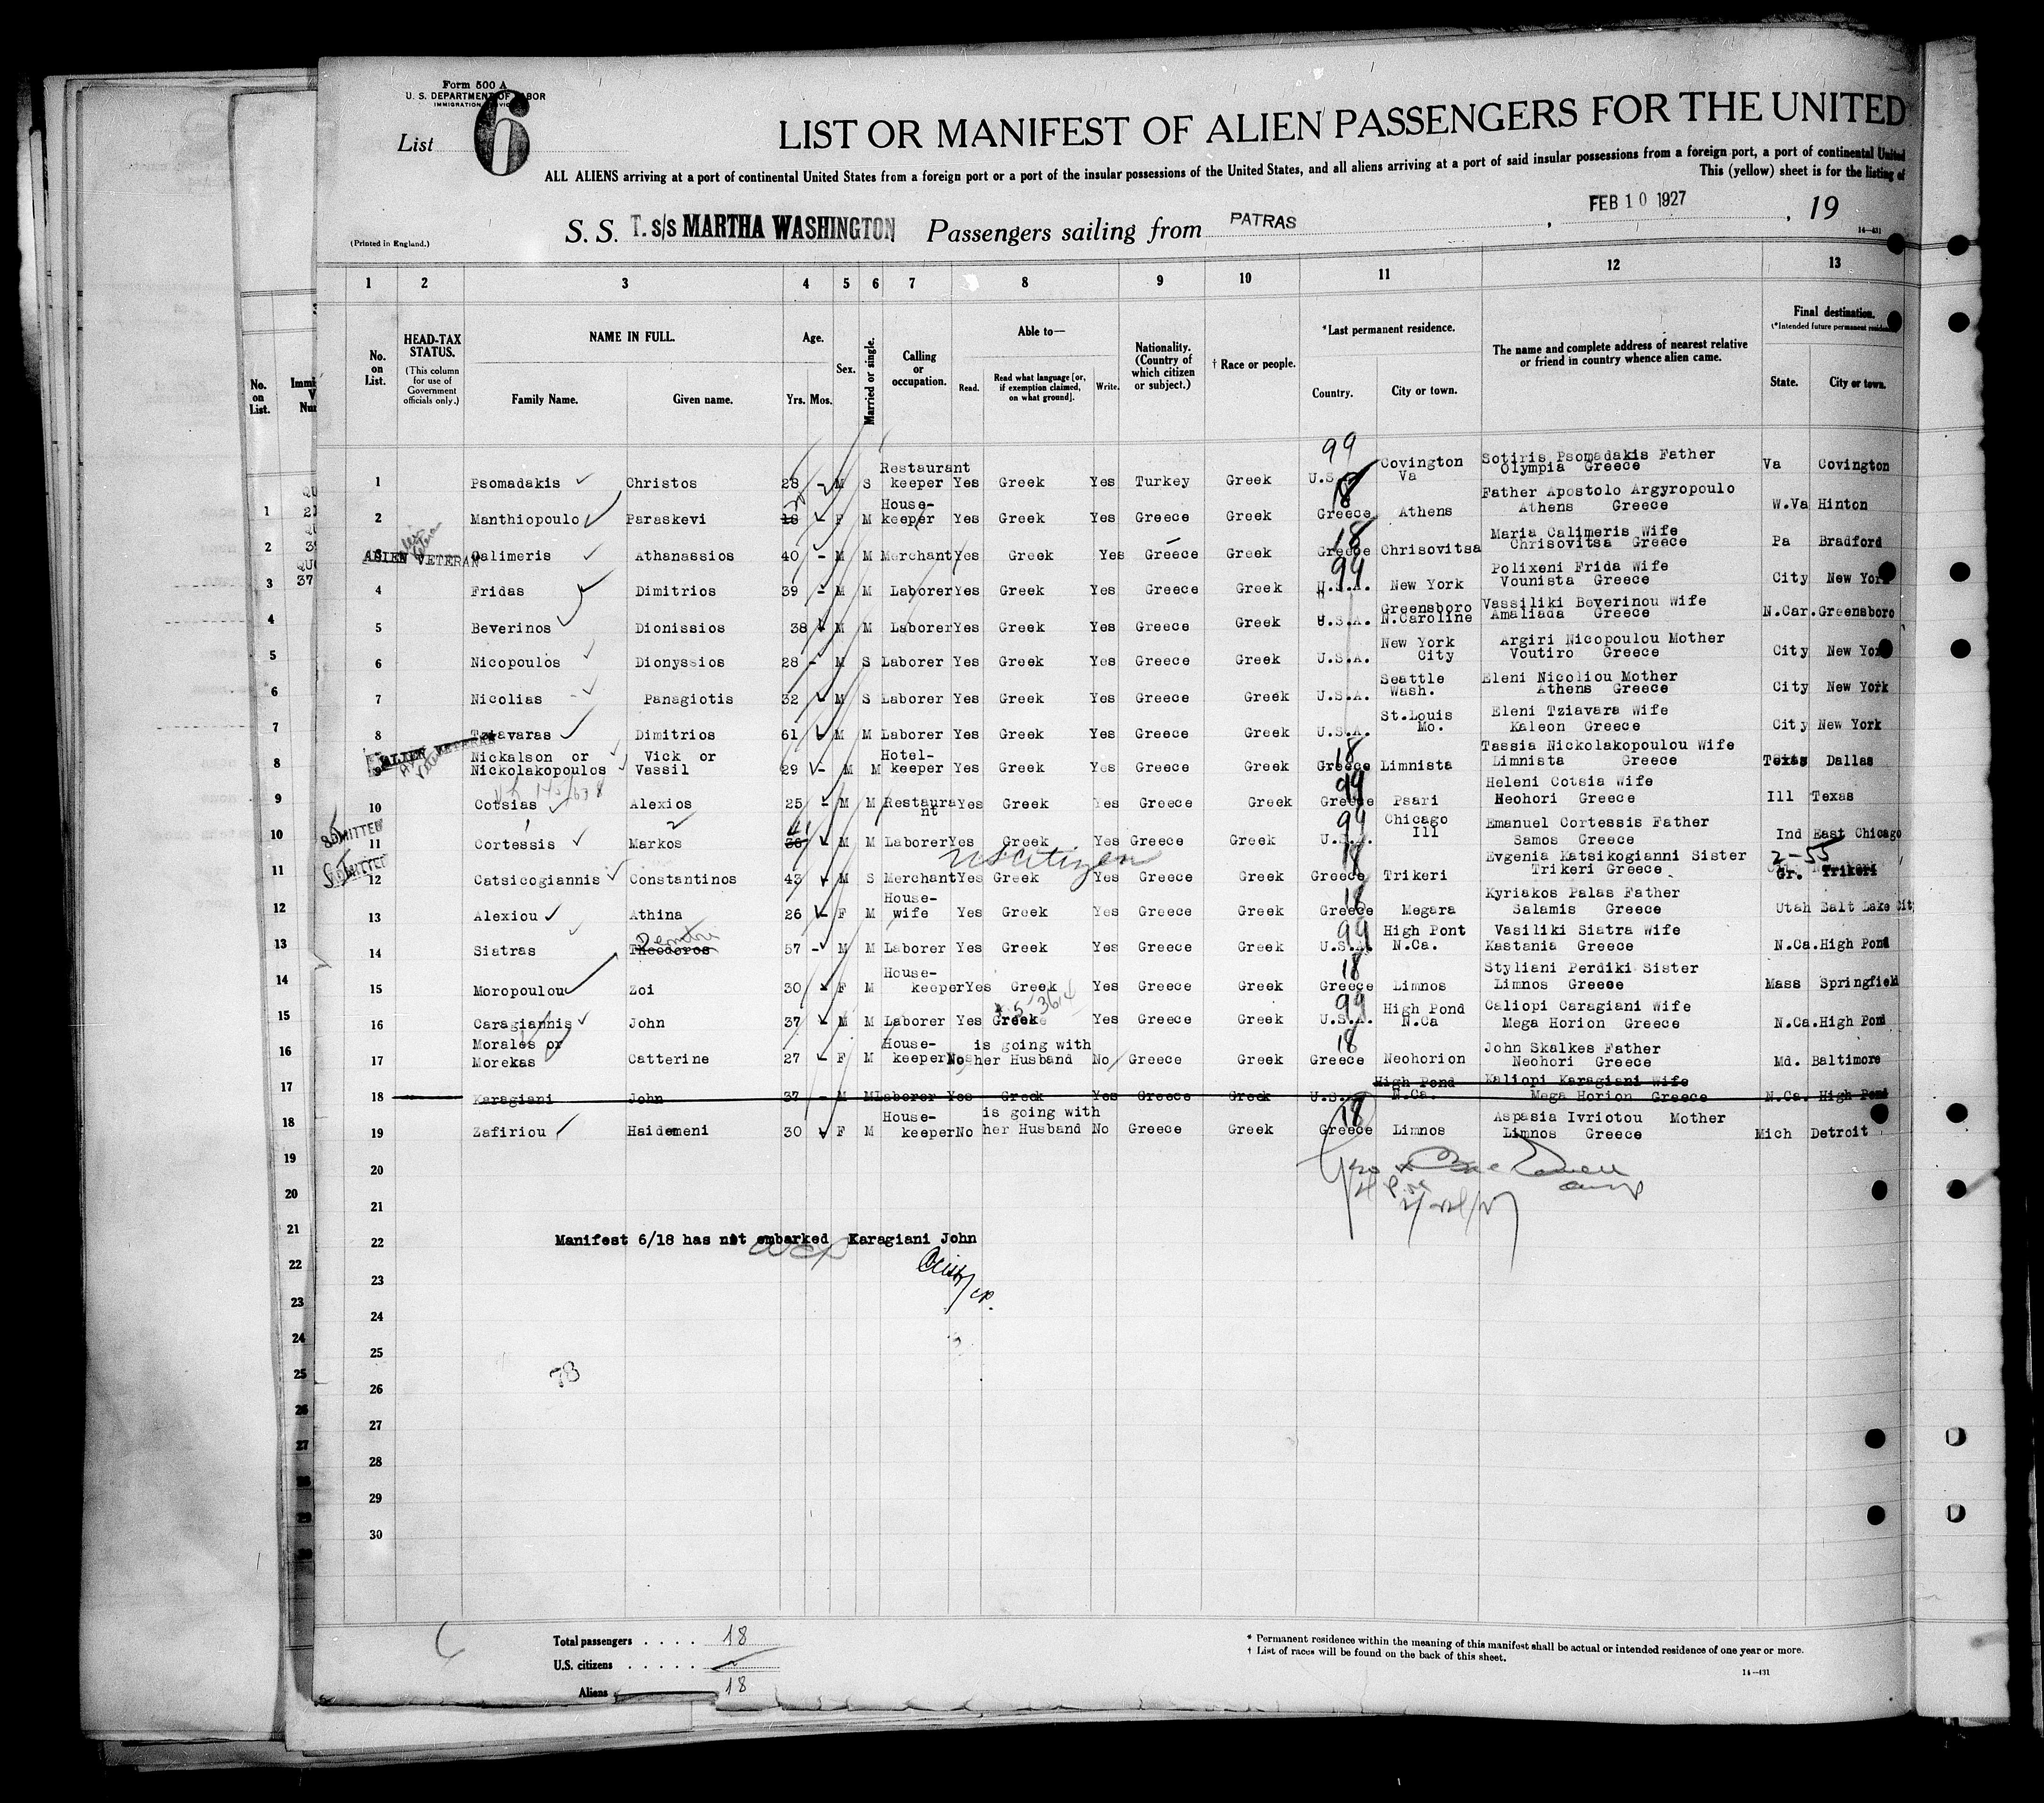 Form 500 A
U. S. DEPARTMENT OF LABOR
List 6
LIST OR MANIFEST OF ALIEN PASSENGERS FOR THE UNITED
ALL ALIENS arriving at a port of continental United States from a foreign port or a port of the insular possessions of the United States, and all aliens arriving at a port of said insular possessions from a foreign port, a port of continental United
This (yellow) sheet is for the listing of
(Printed in England.)
S. S. T. s/s MARTHA WASHINGTON Passengers sailing from PATRAS, FEB 10 1927, 19
14-431
1 2 3 4 5 6 7 8 9 10 11 12 13
No. on List.
HEAD-TAX STATUS.
(This column for use of Government officials only.)
NAME IN FULL.
Family Name. Given name.
Age.
Yrs. Mos.
Sex.
Married or single.
Calling or occupation.
Able to—
Read. Read what language [or, if exemption claimed, on what ground]. Write.
Nationality. (Country of which citizen or subject.)
† Race or people.
*Last permanent residence.
Country. City or town.
The name and complete address of nearest relative or friend in country whence alien came.
Final destination.
(*Intended future permanent residence
State. City or town.
1 Psomadakis Christos 28 - M S Restaurant keeper Yes Greek Yes Turkey Greek 99 U.S.A. Covington Va Sotiris Psomadakis Father Olympia Greece Va Covington
2 Manthiopoulo Paraskevi 18 F M House-keeper Yes Greek Yes Greece Greek 18 Greece Athens Father Apostolo Argyropoulo Athens Greece W.Va Hinton
3 ALIEN VETERAN Calimeris Athanassios 40 - M M Merchant Yes Greek Yes Greece Greek 18 Greece Chrisovitsa Maria Calimeris Wife Chrisovitsa Greece Pa Bradford
4 Fridas Dimitrios 39 - M M Laborer Yes Greek Yes Greece Greek 99 U.S.A. New York Polixeni Frida Wife Vounista Greece City New York
5 Beverinos Dionissios 38 M M Laborer Yes Greek Yes Greece Greek U.S.A. Greensboro N.Caroline Vassiliki Beverinou Wife Amaliada Greece N.Car. Greensboro
6 Nicopoulos Dionyssios 28 - M S Laborer Yes Greek Yes Greece Greek U.S.A. New York City Argiri Nicopoulou Mother Voutiro Greece City New York
7 Nicolias Panagiotis 32 M S Laborer Yes Greek Yes Greece Greek U.S.A. Seattle Wash. Eleni Nicoliou Mother Athens Greece City New York
8 Tziavaras Dimitrios 61 M M Laborer Yes Greek Yes Greece Greek U.S.A. St.Louis Mo. Eleni Tziavara Wife Kaleon Greece City New York
9 ALIEN VETERAN Nickalson or Nickolakopoulos Vick or Vassil 29 - M M Hotel-keeper Yes Greek Yes Greece Greek 18 Greece Limnista Tassia Nickolakopoulou Wife Limnista Greece Texas Dallas
10 Cotsias Alexios 25 - M M Restaurant Yes Greek Yes Greece Greek 99 Greece Psari Heleni Cotsia Wife Neohori Greece Ill Texas
11 ADMITTED Cortessis Markos 36 41 M M Laborer Yes Greek Yes Greece Greek 99 U.S.A. Chicago Ill Emanuel Cortessis Father Samos Greece Ind East Chicago
US Citizen
2-55
12 ADMITTED Catsicogiannis Constantinos 43 M S Merchant Yes Greek Yes Greece Greek 18 Greece Trikeri Evgenia Katsikogianni Sister Trikeri Greece Gr. Trikeri
13 Alexiou Athina 26 F M House-wife Yes Greek Yes Greece Greek 18 Greece Megara Kyriakos Palas Father Salamis Greece Utah Salt Lake City
14 Siatras Theodoros 57 - M M Laborer Yes Greek Yes Greece Greek 99 U.S.A. High Pont N.Ca. Vasiliki Siatra Wife Kastania Greece N.Ca. High Pond
15 Moropoulou Zoi 30 F M House-keeper Yes Greek Yes Greece Greek 18 Greece Limnos Styliani Perdiki Sister Limnos Greece Mass Springfield
16 Caragiannis John 37 M M Laborer Yes Greek Yes Greece Greek 99 U.S.A. High Pond N.Ca Caliopi Caragiani Wife Mega Horion Greece N.Ca. High Pond
17 Morales or Morekas Catterine 27 F M House-keeper No is going with her Husband No Greece Greek 18 Greece Neohorion John Skalkes Father Neohori Greece Md. Baltimore
18 Karagiani John 37 - M M Laborer Yes Greek Yes Greece Greek U.S.A. High Pond N.Ca. Kaliopi Karagiani Wife Mega Horion Greece N.Ca. High Pond
19 Zafiriou Haidemeni 30 F M House-keeper No is going with her Husband No Greece Greek 18 Greece Limnos Aspasia Ivriotou Mother Limnos Greece Mich Detroit
20
21
22 Manifest 6/18 has not embarked Karagiani John
23
24
25
78
26
27
28
29
30
Total passengers . . . . 18
U.S. citizens . . . . .
Aliens 18
* Permanent residence within the meaning of this manifest shall be actual or intended residence of one year or more.
† List of races will be found on the back of this sheet.
14-431